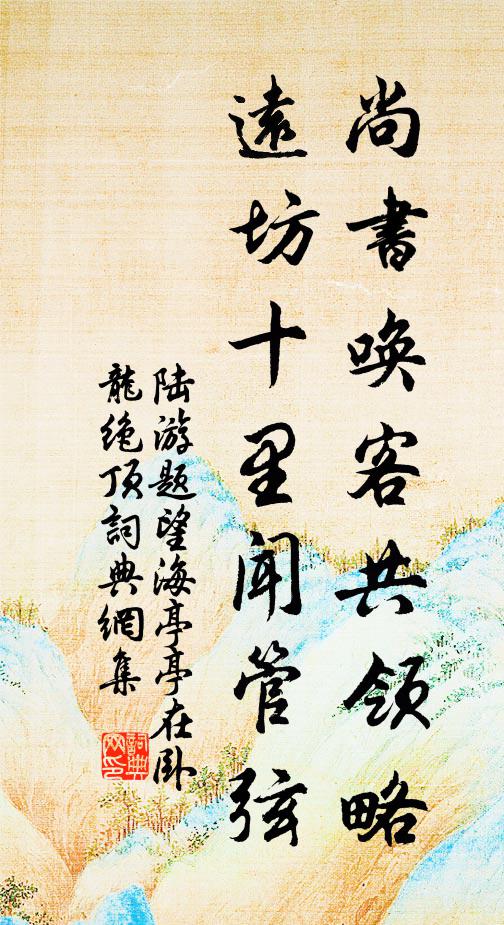 尚書唤客共领略
遠坊十里闻管弦
陆游题望海亭亭在卧
龍绝顶詞典網集
詞典
网印